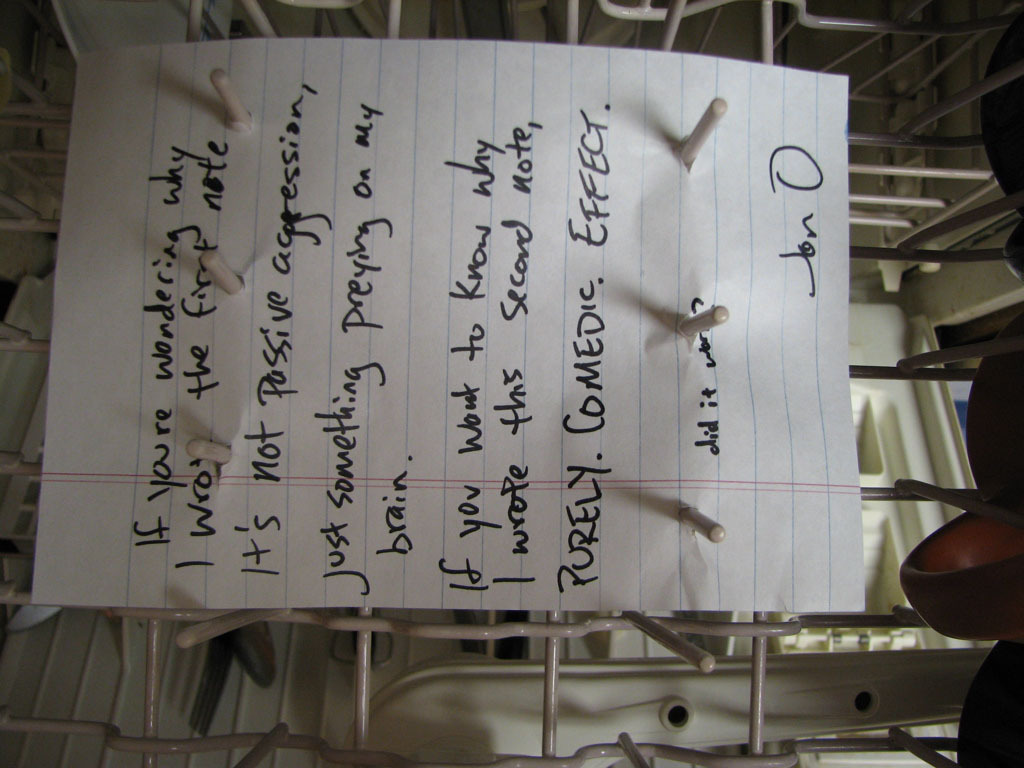 If you're wondering why
I wrote the first note
It's not passive aggression,
just something preying on my
brain.
If you want to know why
I wrote this second note,
PURELY. COMEDIC. EFFECT.
did it work?
Jon D